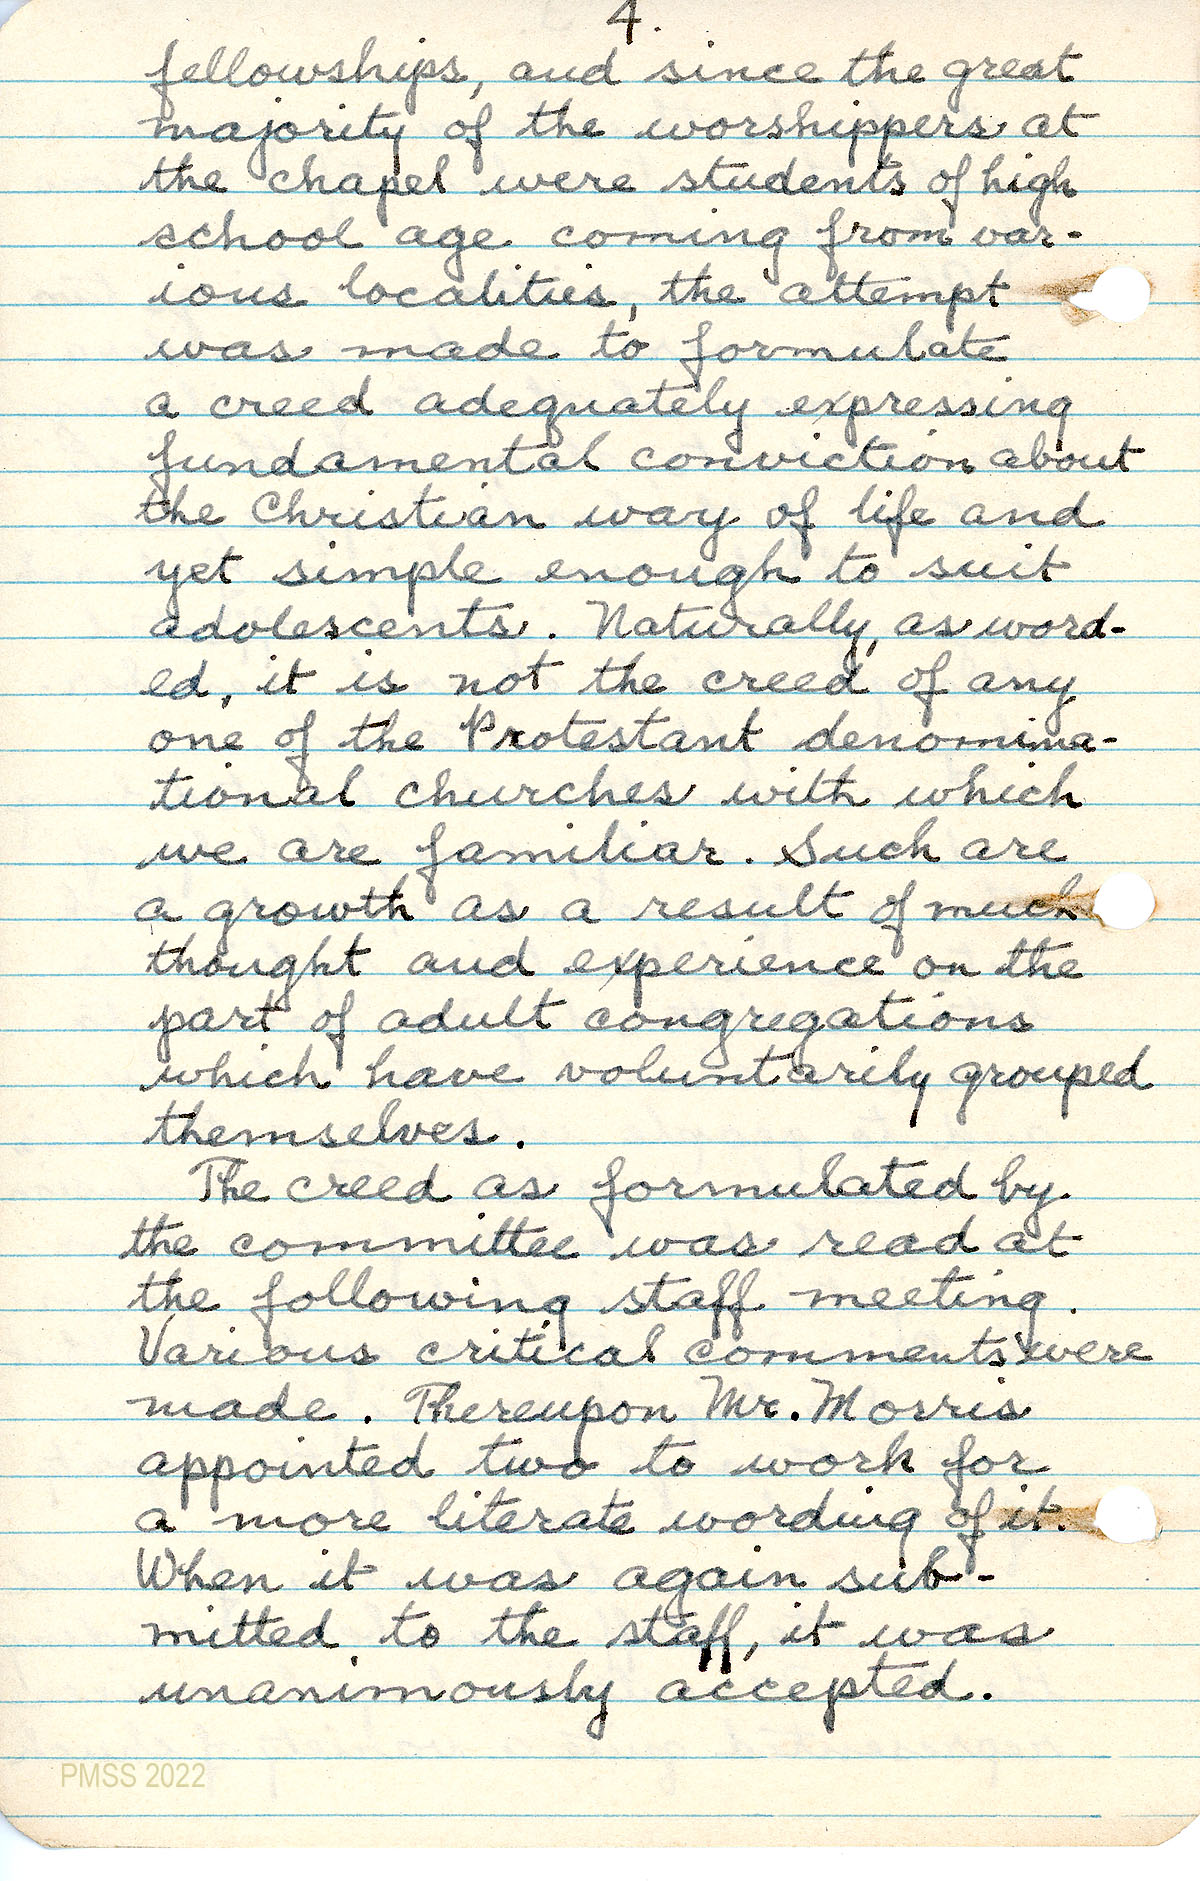 4.
fellowships, and since the great
majority of the worshippers at
the chapel were students of high
school age coming from var-
ious localities, the attempt
was made to formulate
a creed adequately expressing
fundamental conviction about
the Christian way of life and
yet simple enough to suit
adolescents. Naturally, as word-
ed, it is not the creed of any
one of the Protestant denomina-
tional churches with which
we are familiar. Such are
a growth as a result of much
thought and experience on the
part of adult congregations
which have voluntarily grouped
themselves.
The creed as formulated by
the committee was read at
the following staff meeting.
Various critical comments were
made. Thereupon Mr. Morris
appointed two to work for
a more literate wording of it.
When it was again sub-
mitted to the staff, it was
unanimously accepted.
PMSS 2022